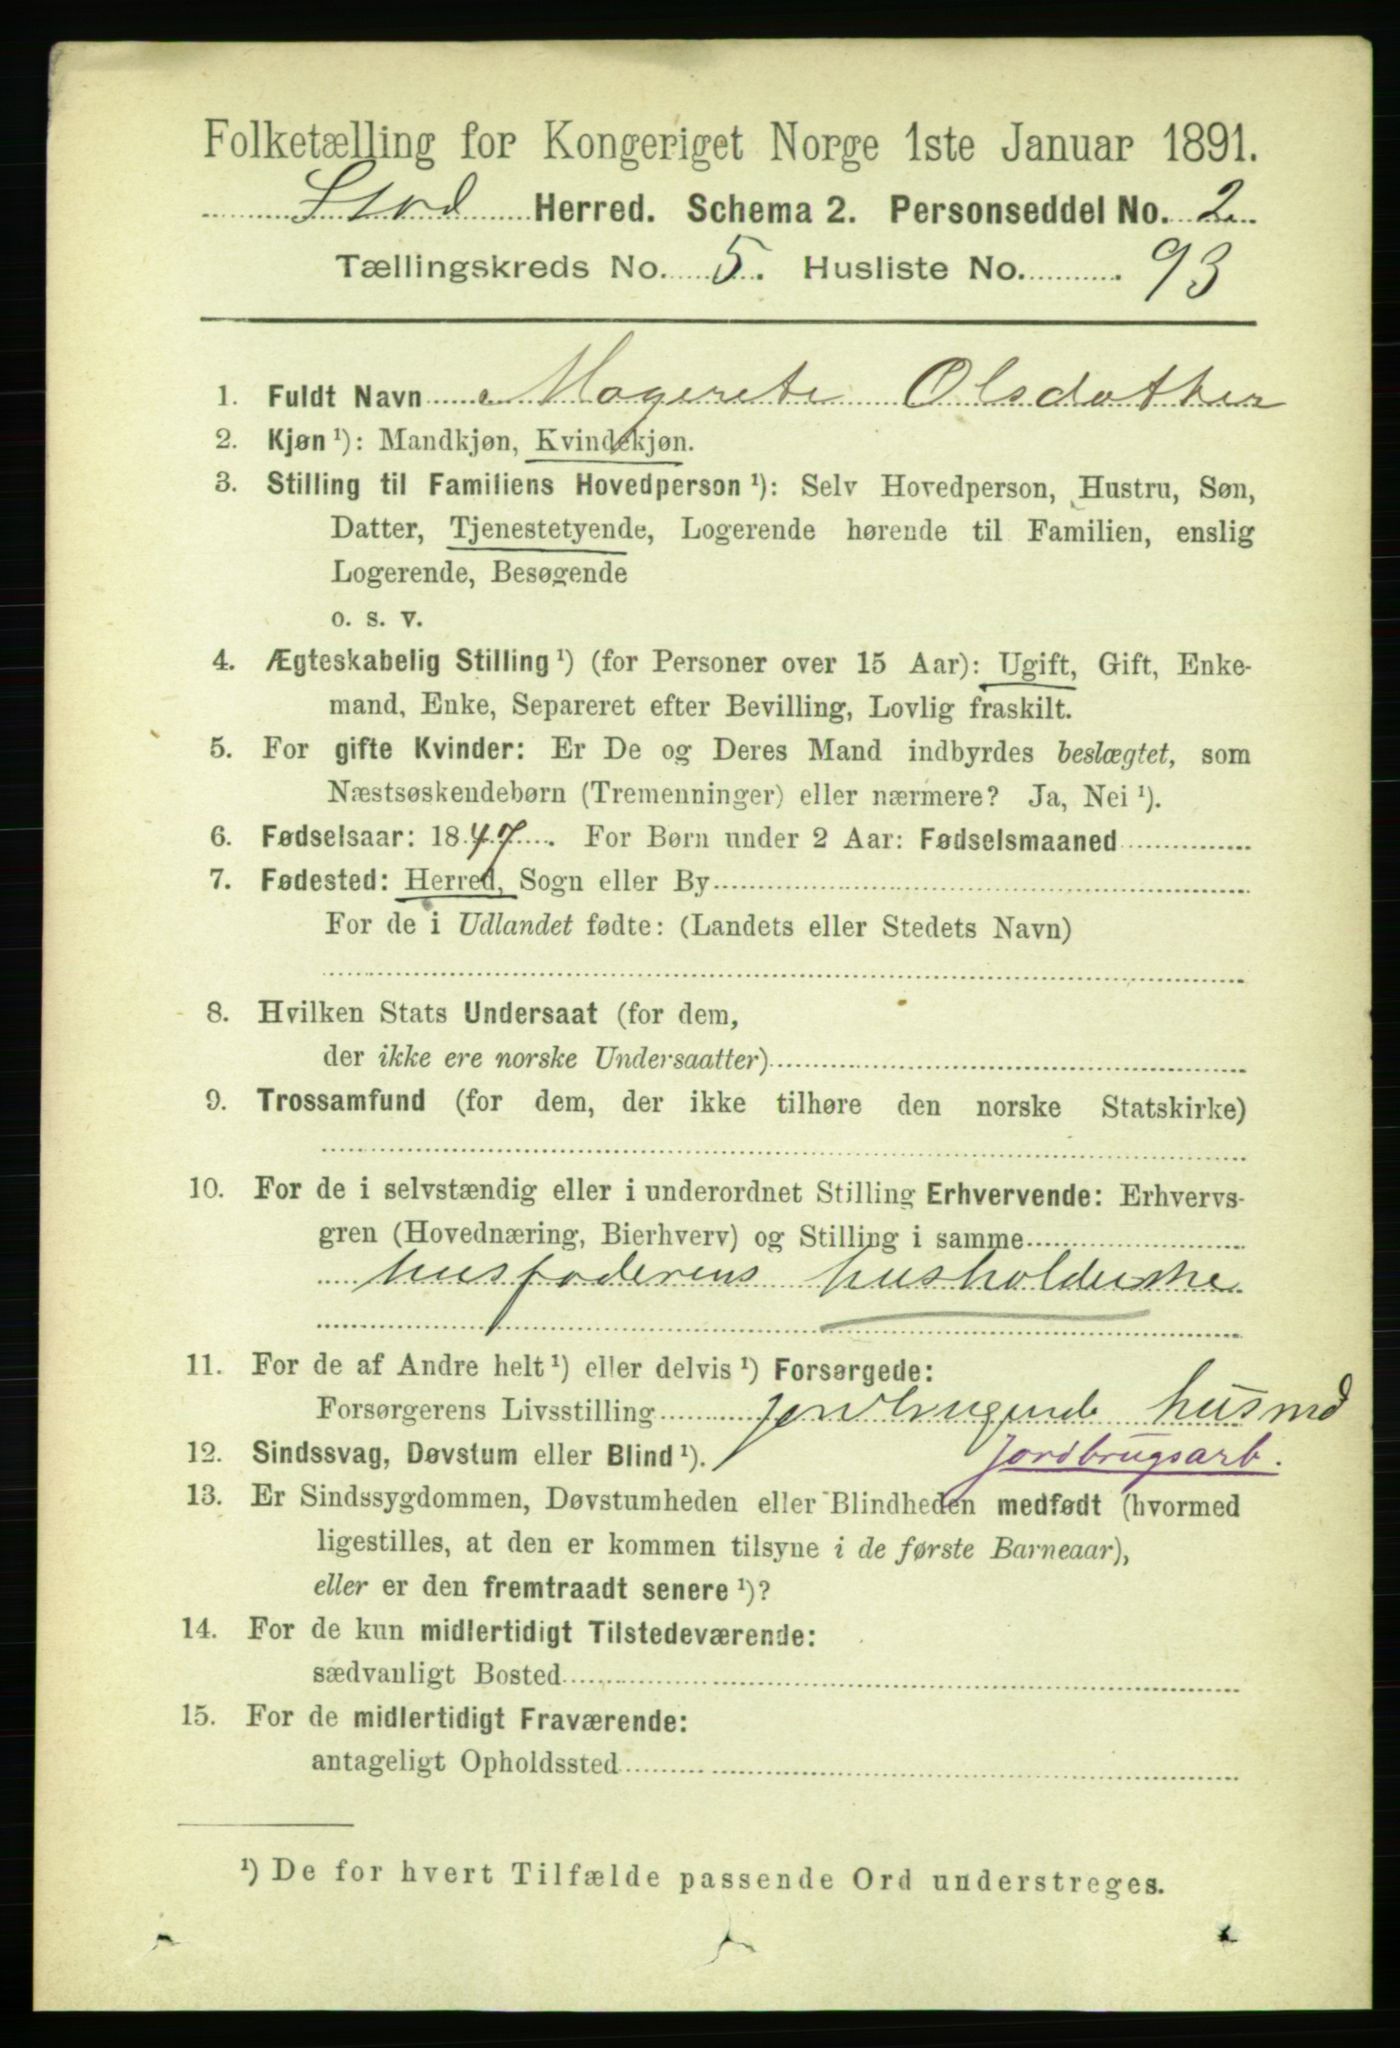 Folketælling for Kongeriget Norge 1ste Januar 1891.
Stord Herred. Schema 2. Personseddel No. 2
Tællingskreds No. 5. Husliste No. 93
1. Fuldt Navn Magerete Olsdatter
2. Kjøn ¹): Mandkjøn, Kvindekjøn.
3. Stilling til Familiens Hovedperson ¹): Selv Hovedperson, Hustru, Søn,
Datter, Tjenestetyende, Logerende hørende til Familien, enslig
Logerende, Besøgende
o. s. v.
4. Ægteskabelig Stilling ¹) (for Personer over 15 Aar): Ugift, Gift, Enke-
mand, Enke, Separeret efter Bevilling, Lovlig fraskilt.
5. For gifte Kvinder: Er De og Deres Mand indbyrdes beslægtet, som
Næstsøskendebørn (Tremenninger) eller nærmere? Ja, Nei ¹).
6. Fødselsaar: 1847. For Børn under 2 Aar: Fødselsmaaned
7. Fødested: Herred, Sogn eller By
For de i Udlandet fødte: (Landets eller Stedets Navn)
8. Hvilken Stats Undersaat (for dem,
der ikke ere norske Undersaatter)
9. Trossamfund (for dem, der ikke tilhøre den norske Statskirke)
10. For de i selvstændig eller i underordnet Stilling Erhvervende: Erhvervs-
gren (Hovednæring, Bierhverv) og Stilling i samme
husfaderens husholderske
11. For de af Andre helt ¹) eller delvis ¹) Forsørgede:
Forsørgerens Livsstilling jordbrugende husmd
12. Sindssvag, Døvstum eller Blind ¹). Jordbrugsarb.
13. Er Sindssygdommen, Døvstumheden eller Blindheden medfødt (hvormed
ligestilles, at den er kommen tilsyne i de første Barneaar),
eller er den fremtraadt senere ¹)?
14. For de kun midlertidigt Tilstedeværende:
sædvanligt Bosted
15. For de midlertidigt Fraværende:
antageligt Opholdssted
¹) De for hvert Tilfælde passende Ord understreges.